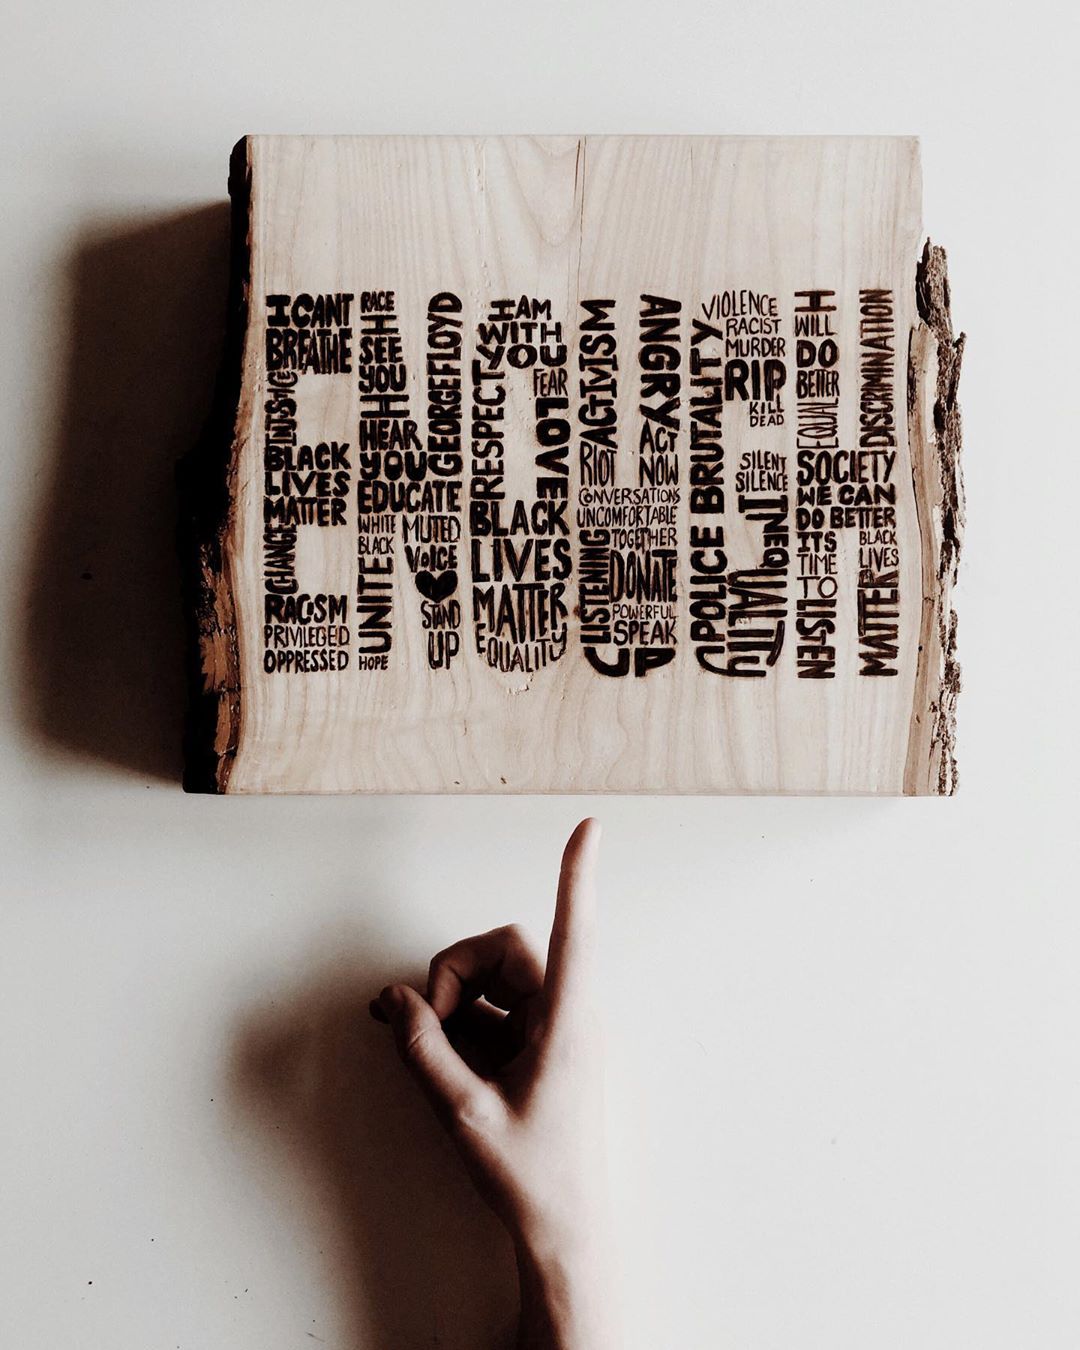 I CANT
BREATHE
INJUSTICE
BLACK
LIVES
MATTER
CHANGE
RACISM
PRIVILEGED
OPPRESSED
RACE
I
SEE
YOU
I
HEAR
YOU
EDUCATE
WHITE
BLACK
UNITE
HOPE
GEORGE FLOYD
MUTED
VOICE
STAND
UP
I AM
WITH
YOU
FEAR
RESPECT
LOVE
BLACK
LIVES
MATTER
EQUALITY
ACTIVISM
RIOT
ANGRY
ACT
NOW
CONVERSATIONS
UNCOMFORTABLE
TOGETHER
LISTENING
DONATE
POWERFUL
SPEAK
UP
VIOLENCE
RACIST
MURDER
RIP
KILL
DEAD
POLICE BRUTALITY
SILENT
SILENCE
INEQUALITY
I
WILL
DO
BETTER
EQUAL
DISCRIMINATION
SOCIETY
WE CAN
DO BETTER
ITS
TIME
TO
LISTEN
BLACK
LIVES
MATTER